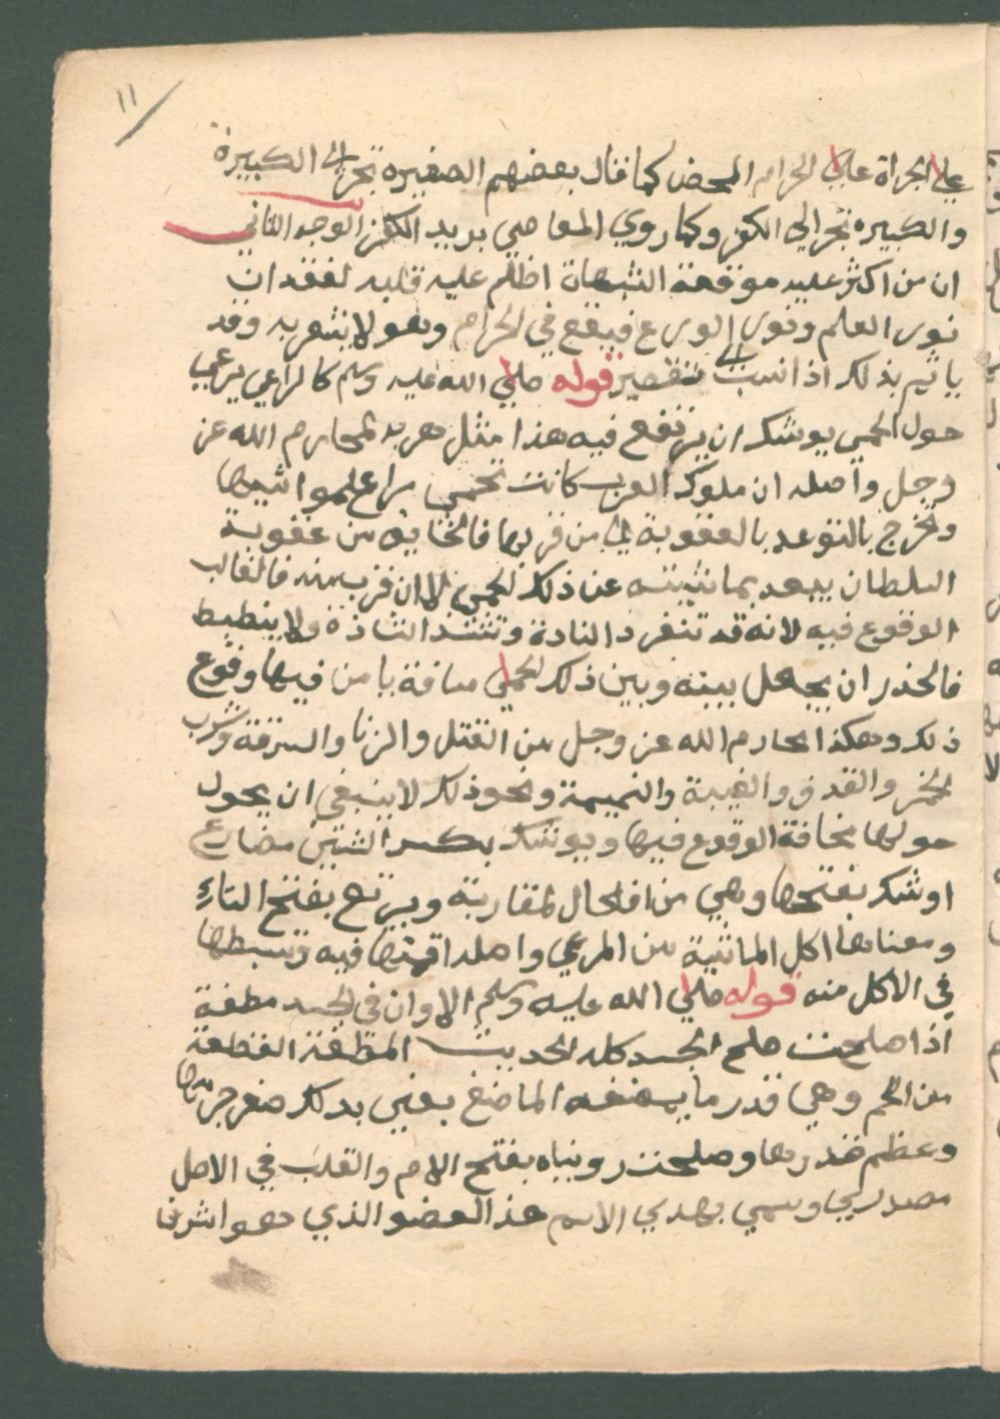 ١١
على الجراة على الحرام المحض كما قال بعضهم الصغيرة تجر الى الكبيرة
والكبيرة تجر الى الكفر وكما روي المعاصي بريد الكفر الوجه الثاني
ان من اكثر عليه موقعة الشبهات اظلم عليه قلبه لفقدان
نور العلم ونور الورع فيقع في الحرام وهو لا يشعر به وقد
ياثم بذلك اذا نسب الى تقصير قوله صلى الله عليه وسلم كالراعي يرعى
حول الحمى يوشك ان يرتقع فيه هذا مثل ضربه لمحارم الله عز
وجل واصله ان ملوك العرب كانت تحمى مراع لمواشيها
وتخرج بالتوعد بالعقوبة لمن قربها فالخايف من عقوبة
السلطان يبعد بماشيته عن ذلك الحمى لانه ان قرب منه فالغالب
الوقوع فيه لانه قد تنفرد النادة وتشتذ الشاذة ولا ينضبط
فالحذر ان يجعل بينه وبين ذلك الحمى مسافة يامن فيها وقوع
ذلك وهكذا محارم الله عز وجل من القتل والزنا والسرقة وشرب
الخمر والقذف والغيبة والنميمة ونحو ذلك لا ينبغي ان يحول
حولها مخافة الوقوع فيها ويوشك بكسر الشين مضارع
اوشك بفتحها وهي من افعال المقاربة ويرتع بفتح التاء
ومعناها اكل الماشية من المرعي واصله اقامتها فيه وتبسطها
في الاكل منه قوله صلى الله عليه وسلم الا وان في الجسد مضغة
اذا صلحت صلح الجسد كله الحديث المضغة القطعة
من اللحم وهي قدر ما يمضغه الماضغ يعني بذلك صغر جرمها
وعظم قدرها وصلحت رويناه بفتح الام والقلب في الاصل
مصدر وسمي بهدي الاسم هذا العضو الذي هو اشرف